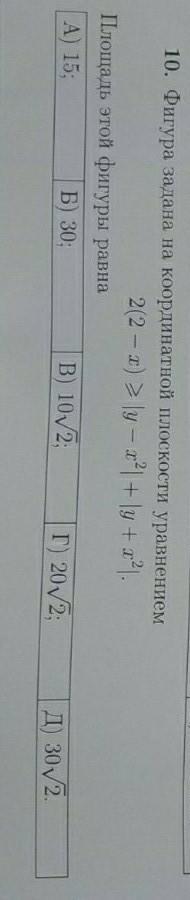 10. Фигура задана на координатной плоскости уравнением
2(2 − x) ⩾ |y − x²| + |y + x²|.
Площадь этой фигуры равна
А) 15; Б) 30; В) 10√2; Г) 20√2; Д) 30√2.